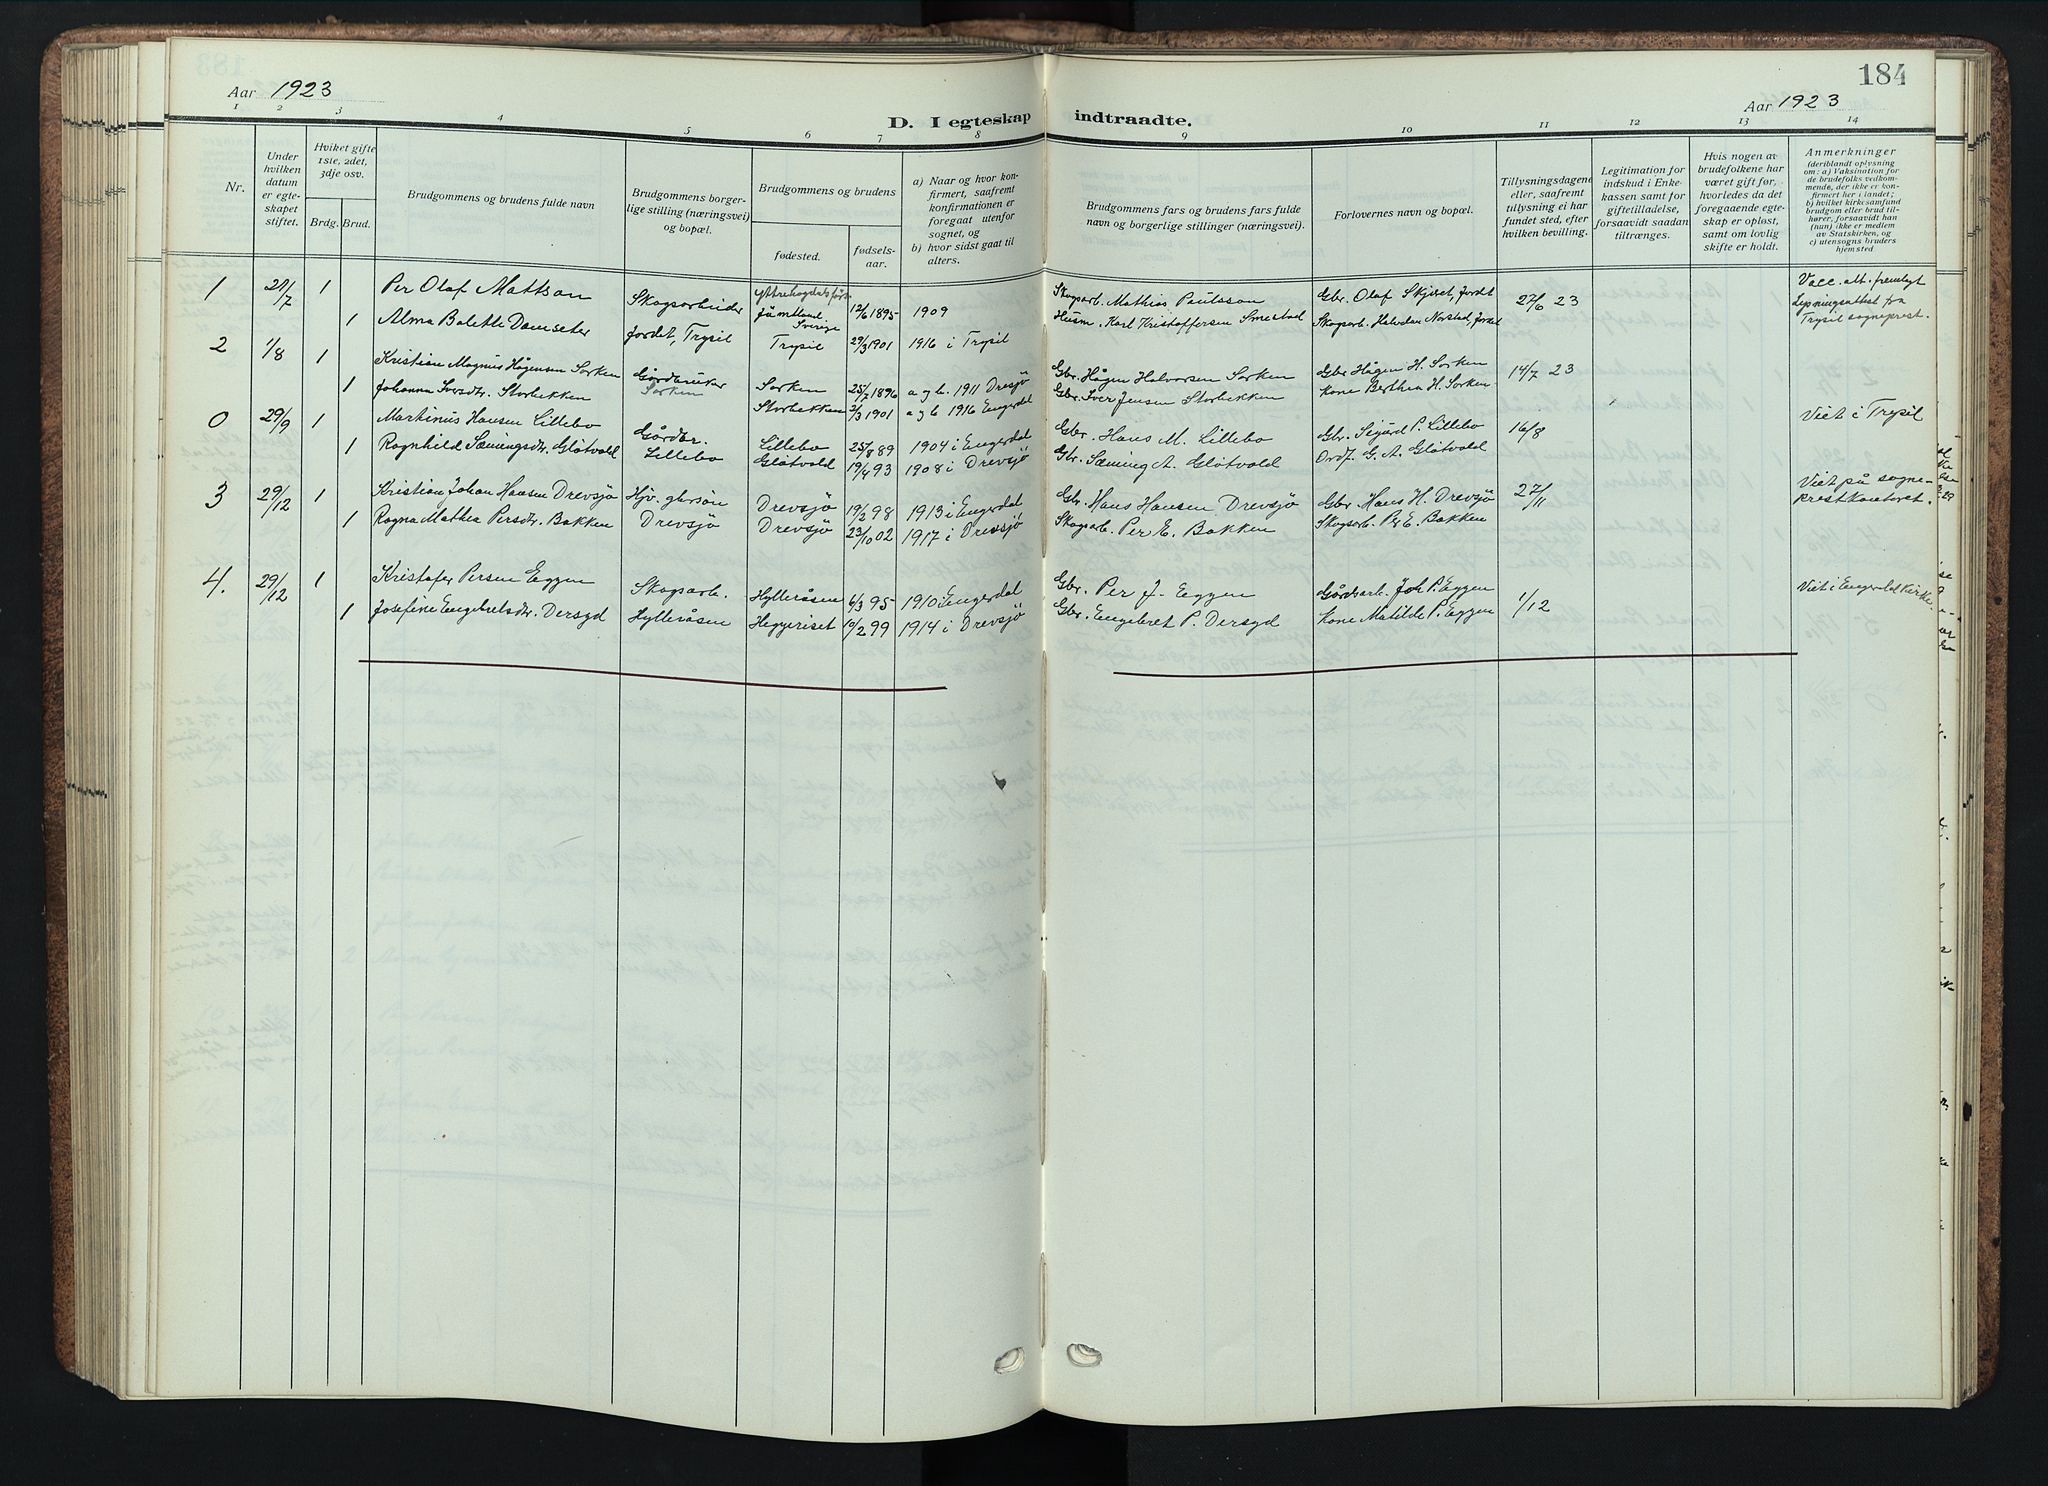 184
Aar 1923
Aar 1923
D. I egteskap indtraadte.
1 2 3 4 5 6 7 8 9 10 11 12 13 14
Nr.
Under hvilken datum er egteskapet stiftet.
Hviket gifte 1ste, 2det, 3dje osv.
Brdg. Brud.
Brudgommens og brudens fulde navn
Brudgommens borgerlige stilling (næringsvei) og bopæl.
Brudgommens og brudens
fødested.
fødselsaar.
a) Naar og hvor konfirmert, saafremt konfirmationen er foregaat utenfor sognet, og
b) hvor sidst gaat til alters.
Brudgommens fars og brudens fars fulde navn og borgerlige stillinger (næringsvei).
Forlovernes navn og bopæl.
Tillysningsdagene eller, saafremt tillysning ei har fundet sted, efter hvilken bevilling.
Legitimation for indskud i Enkekassen samt for giftetilladelse, forsaavidt saadan tiltrænges.
Hvis nogen av brudefolkene har været gift før, hvorledes da det foregaaende egteskap er opløst, samt om lovlig skifte er holdt.
Anmerkninger
(deriblandt oplysning om: a) Vaksination for de brudefolks vedkommende, der ikke er konfirmert her i landet; b) hvilket kirkesamfund brudgom eller brud tilhører, forsaavidt han (hun) ikke er medlem av Statskirken, og c) utensogns bruders hjemsted
1 21/7 1 Per Olaf Mattson Skogsarbeider Jämtland Sverige 12/6 1895 1909 Skogsarb. Mathias Paulsson Gbr. Olaf Skjæret, Jordet 27/6 23 Vacc. att. fremlagt
1 Alma Bolette Damseter Jordet, Trysil Trysil 29/3 1901 1916 i Trysil Husm. Karl Kristoffersen Smestad Skogsarb. Halvdan Norstad, Jordet Lysningsattest fra Trysil sogneprest.
2 1/8 1 Kristian Magnus Hågensen Sorken Gårdbruker Sorken 25/7 1896 a g b. 1911 Drevsjø Gbr. Hågen Halvorsen Sorken Gbr. Hågen H. Sorken 14/7 23
1 Johanne Iversdtr. Storbekken Sorken Storbekken 3/3 1901 a g b 1916 Engerdal Gbr. Iver Jensen Storbekken Kone Berthea H. Sorken
0 29/9 1 Martinius Hansen Lillebo Gårdbr. Lillebo 25/8 89 1904 i Engerdal Gbr. Hans M. Lillebo Gbr. Sigurd P. Lillebo 16/8 Viet i Trysil
1 Ragnhild Sæmingsdtr. Gløtvold Lillebo Gløtvold 19/4 93 1908 i Drevsjø Gbr. Sæming A. Gløtvold Ordf. G. A. Gløtvold
3 29/12 1 Kristian Johan Hansen Drevsjø Hjv. gbrsøn Drevsjø 19/2 98 1913 i Engerdal Gbr. Hans Hansen Drevsjø Gbr. Hans H. Drevsjø 27/11 Viet på sogneprestkontoret.
1 Ragna Mathea Persdtr. Bakken Drevsjø Drevsjø 23/10 02 1917 i Drevsjø Skogsarb. Per E. Bakken Skogsarb. Per E. Bakken
4. 29/12 1 Kristofer Persen Eggen Skogsarb. Hylleråsen 6/3 95 1910 Engerdal Gbr. Per J. Eggen Gårdsarb. Joh P. Eggen 1/12 Viet i Engerdal Kirke
1 Josefine Engebretsdtr. Dersyd Hylleråsen Heggeriset 10/2 99 1914 i Drevsjø Gbr. Engebret P. Dersyd Kone Matilde P. Eggen